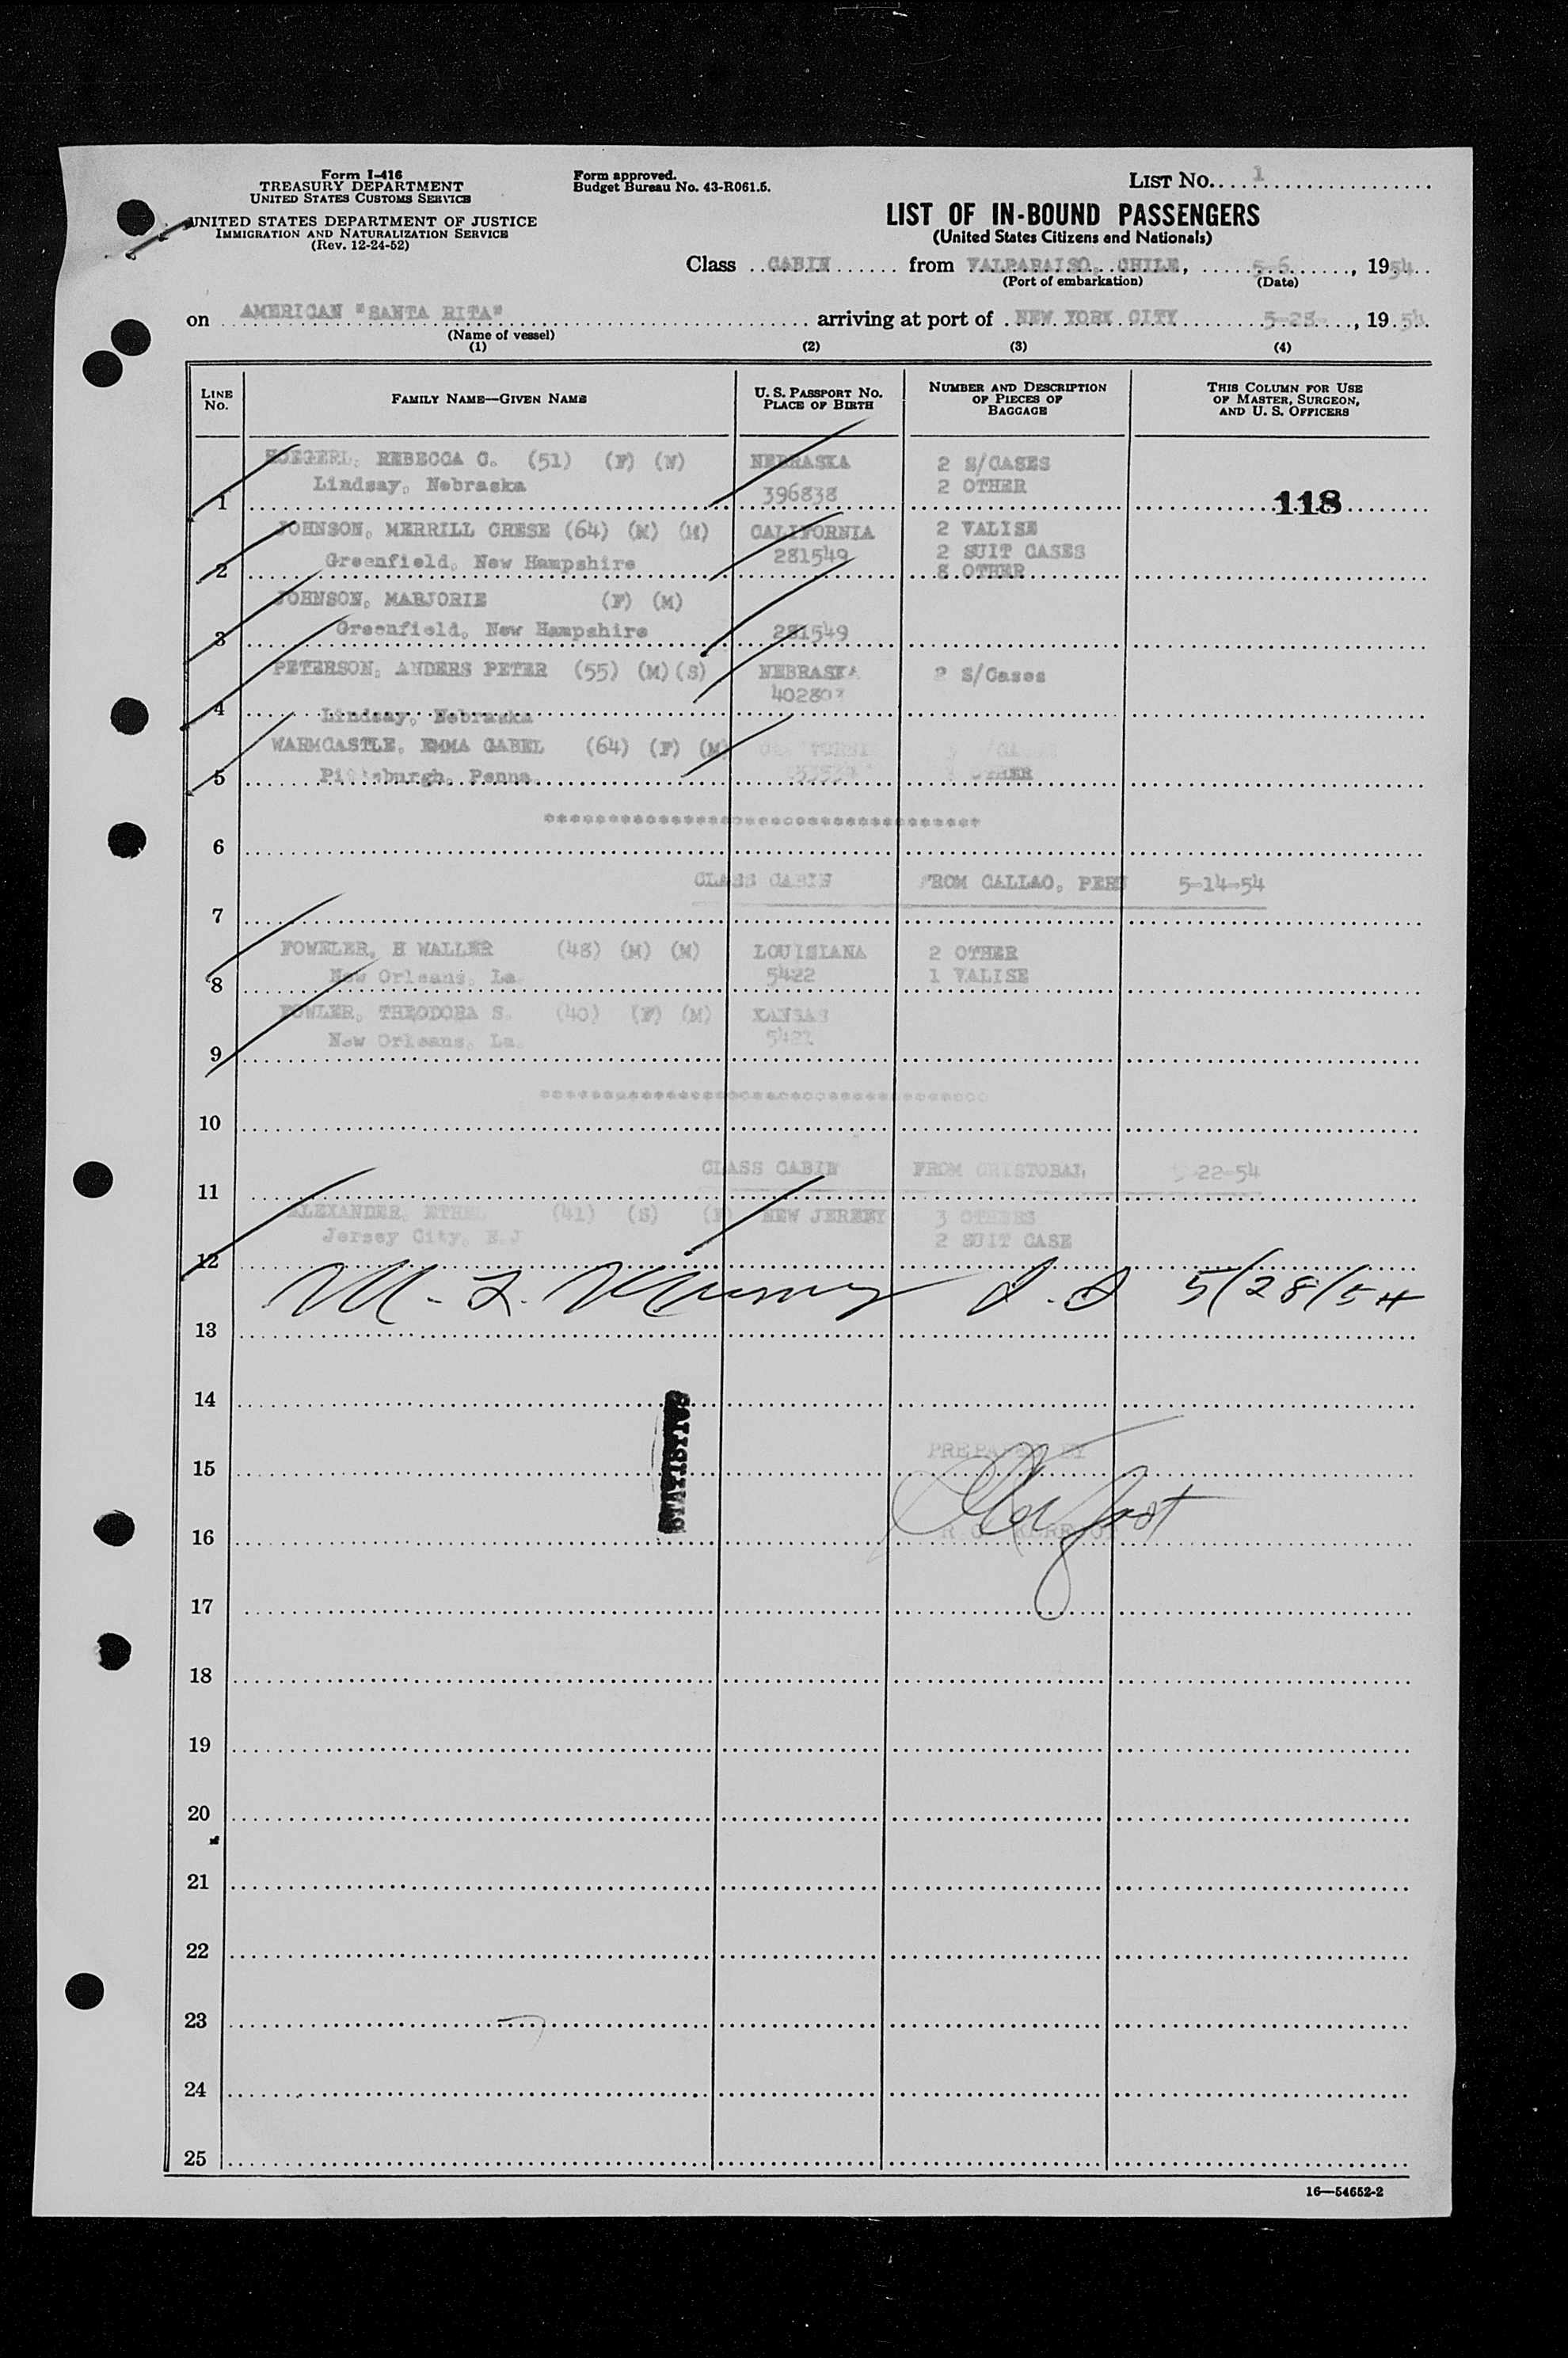 Form I-416
TREASURY DEPARTMENT
UNITED STATES CUSTOMS SERVICE
UNITED STATES DEPARTMENT OF JUSTICE
IMMIGRATION AND NATURALIZATION SERVICE
(Rev. 12-24-52)
Form approved.
Budget Bureau No. 43-R061.5.
LIST No. 1
LIST OF IN-BOUND PASSENGERS
(United States Citizens and Nationals)
Class CABIN from VALPARAISO, CHILE, 5-6, 1954
(Port of embarkation) (Date)
on AMERICAN "SANTA RITA" arriving at port of NEW YORK CITY 5-28, 1954
(Name of vessel)
(1) (2) (3) (4)
LINE No. FAMILY NAME—GIVEN NAME U. S. PASSPORT No. PLACE OF BIRTH NUMBER AND DESCRIPTION OF PIECES OF BAGGAGE THIS COLUMN FOR USE OF MASTER, SURGEON, AND U. S. OFFICERS
REBECCA C. (51) (F) NEBRASKA 2 S/CASES
1 Lindsay, Nebraska 396838 2 OTHER 118
JOHNSON, MERRILL CRESE (64) (M) (M) CALIFORNIA 2 VALISE
2 Greenfield, New Hampshire 281549 2 SUIT CASES
8 OTHER
JOHNSON, MARJORIE (F) (M)
3 Greenfield, New Hampshire 281549
PETERSON, ANDERS PETER (55) (M) (S) NEBRASKA 2 S/Cases
4 Lindsay, Nebraska
WARMCASTLE, EMMA GABEL (64) (F) (M)
5 Pittsburgh, Penna. OTHER
**********************************
6
CLASS CABIN FROM CALLAO, PERU 5-14-54
7
FOWELER, H WALLER (48) (M) (M) LOUISIANA 2 OTHER
8 New Orleans, La. 5422 1 VALISE
FOWLER, THEODORA S. (40) (F) (M) KANSAS
9 New Orleans, La.
**********************************
10
CLASS CABIN FROM CRISTOBAL 5-22-54
11
ALEXANDER, ETHEL (41) (S) (F) NEW JERSEY 3 OTHERS
12 Jersey City, N.J 2 SUIT CASE
13 M. L. Murray 5/28/54
14
PREPARED BY
15
16
17
18
19
20
21
22
23
24
25
16—54652-2